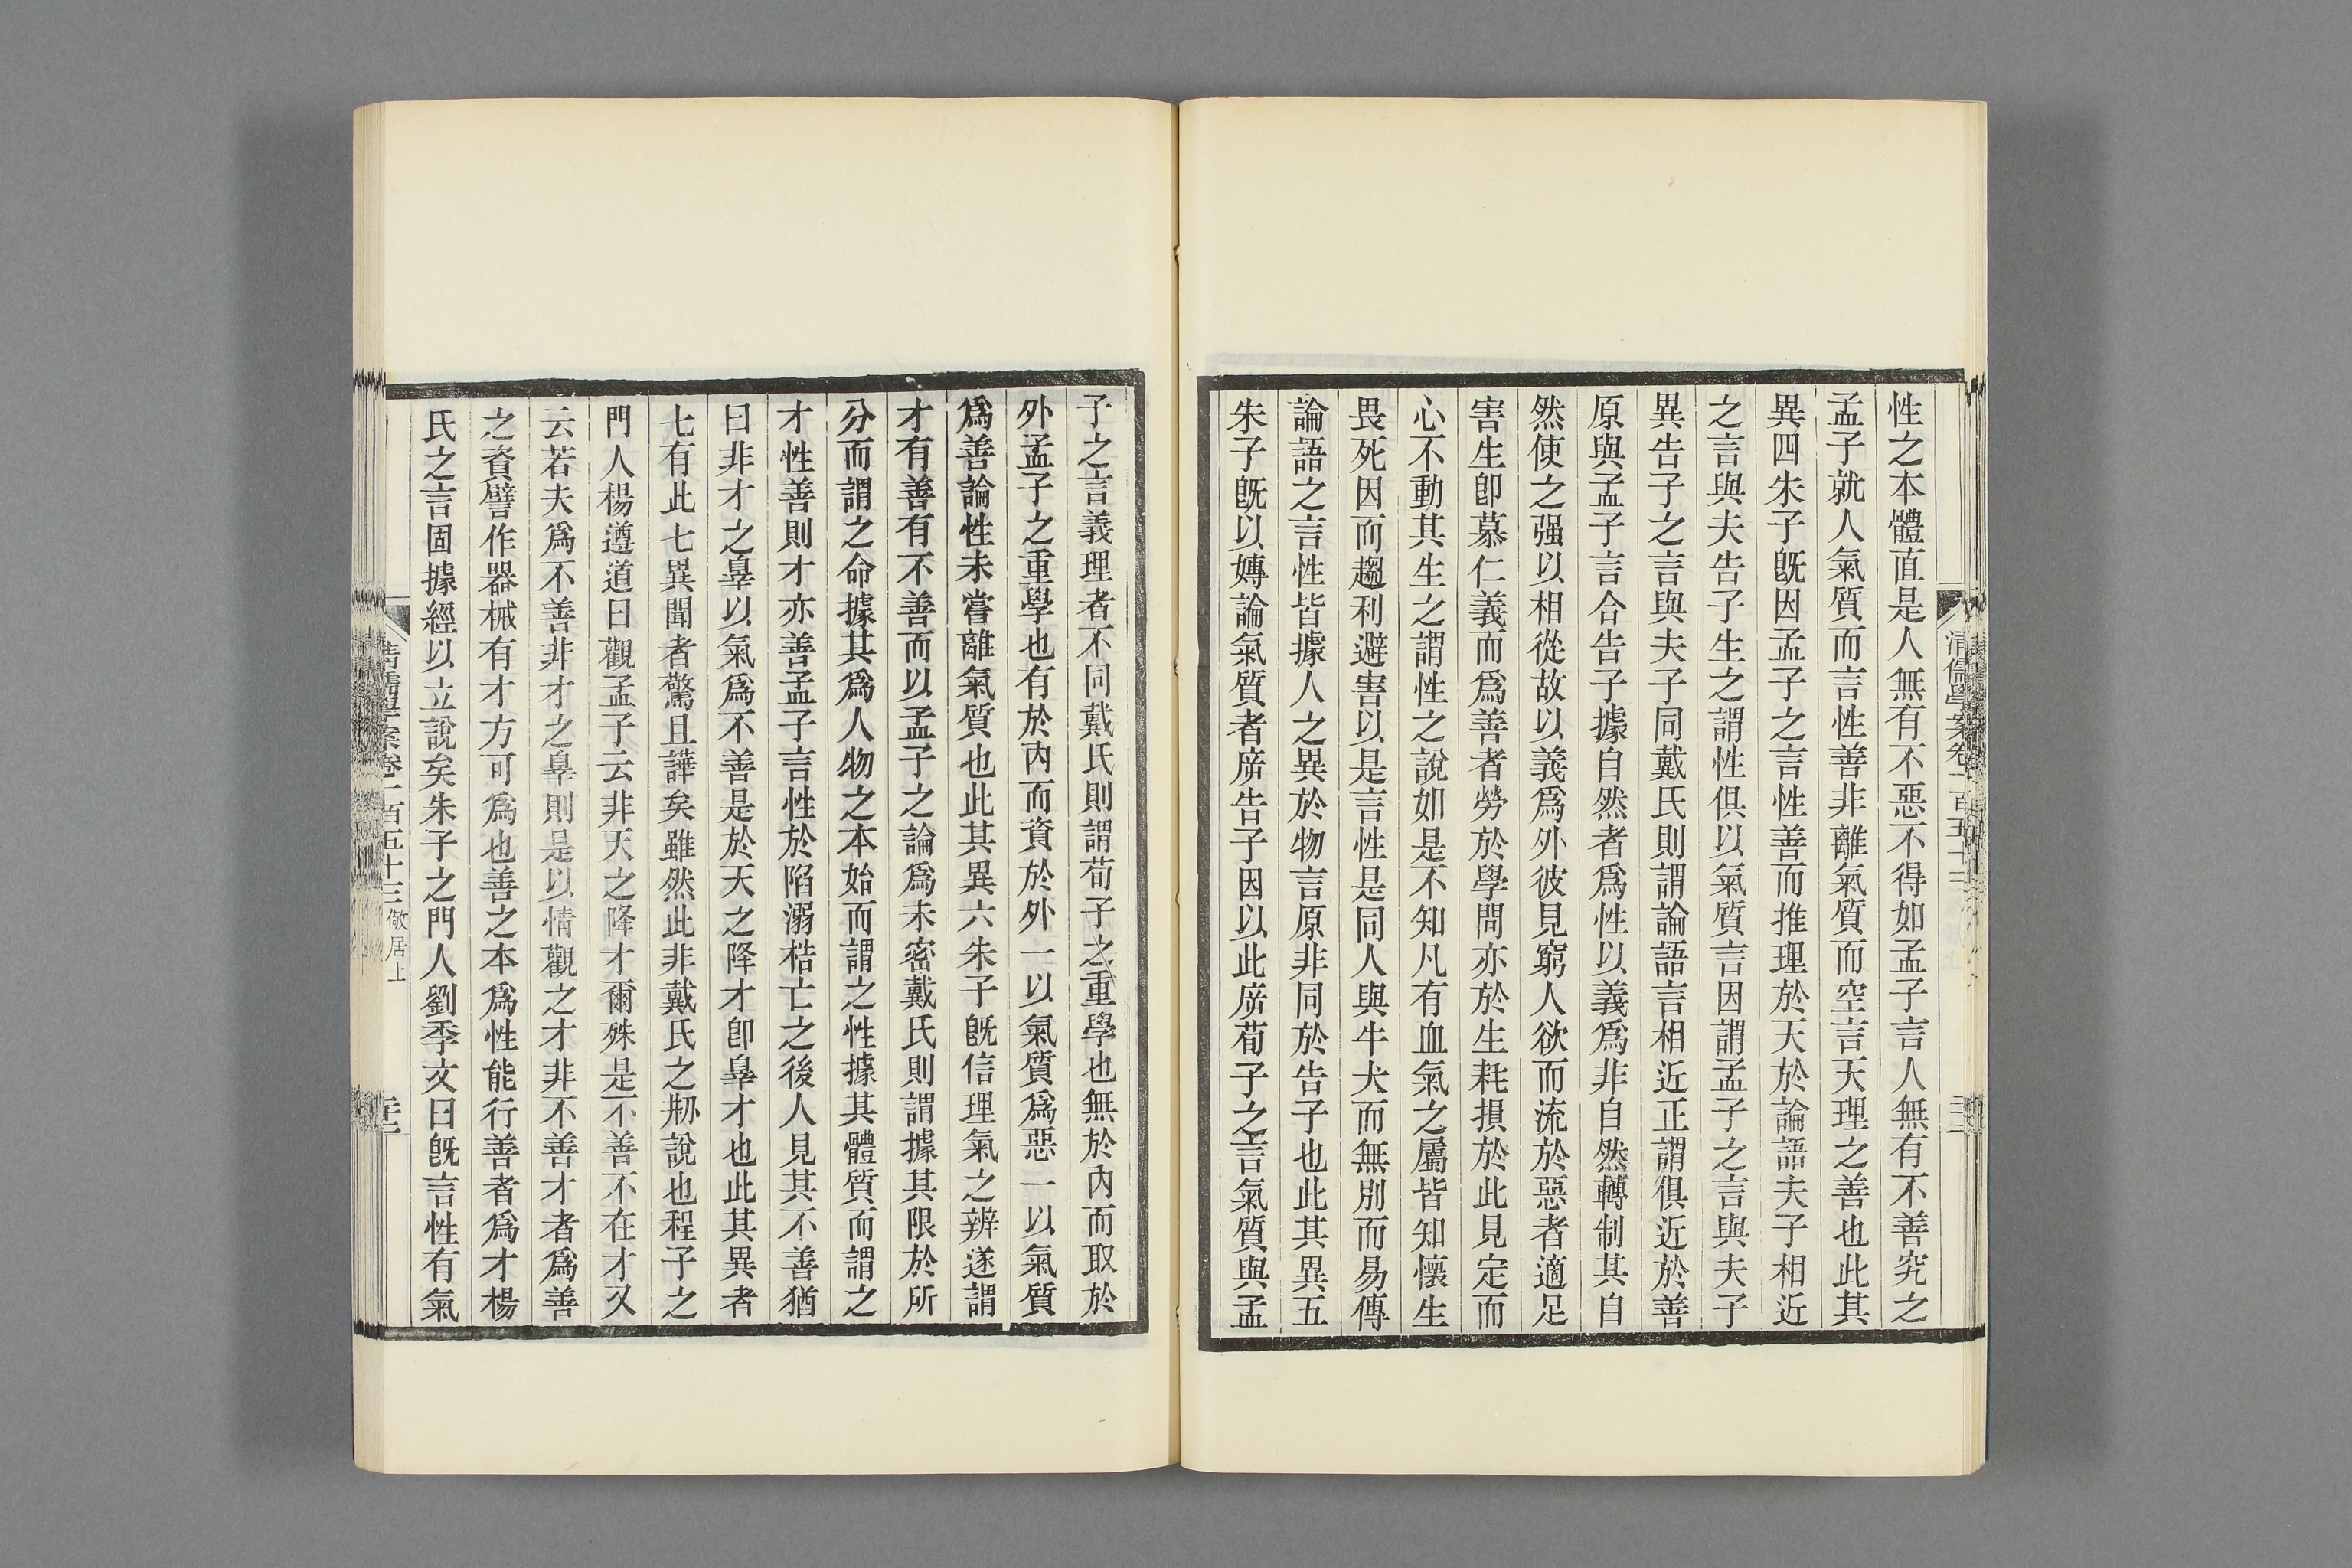 性之本體直是人無有不惡不得如孟子言人無有不善究之
孟子就人氣質而言性善非離氣質而空言天理之善也此其
異四朱子旣因孟子之言性善而推理於天於論語夫子相近
之言與夫告子生之謂性俱以氣質言因謂孟子之言與夫子
異告子之言與夫子同戴氏則謂論語言相近正謂俱近於善
原與孟子言合告子據自然者爲性以義爲非自然轉制其自
然使之强以相從故以義爲外彼見窮人欲而流於惡者適足
害生卽慕仁義而爲善者勞於學問亦於生耗損於此見定而
心不動其生之謂性之說如是不知凡有血氣之屬皆知懷生
畏死因而趨利避害以是言性是同人與牛犬而無別而易傳
論語之言性皆據人之異於物言原非同於告子也此其異五
朱子旣以媷論氣質者㡿告子因以此㡿荀子之言氣質與孟
子之言義理者不同戴氏則謂荀子之重學也無於內而取於
外孟子之重學也有於內而資於外一以氣質爲惡一以氣質
爲善論性未嘗離氣質也此其異六朱子旣信理氣之辨遂謂
才有善有不善而以孟子之論爲未密戴氏則謂據其限於所
分而謂之命據其爲人物之本始而謂之性據其體質而謂之
才性善則才亦善孟子言性於陷溺梏亡之後人見其不善猶
曰非才之辠以氣爲不善是於天之降才卽辠才也此其異者
七有此七異聞者驚且譁矣雖然此非戴氏之剙說也程子之
門人楊遵道曰觀孟子云非天之降才爾殊是不善不在才又
云若夫爲不善非才之辠則是以情觀之才非不善才者爲善
之資譬作器械有才方可爲也善之本爲性能行善者爲才楊
氏之言固據經以立說矣朱子之門人劉季文曰旣言性有氣
清儒學案卷一百五十三 儆居上